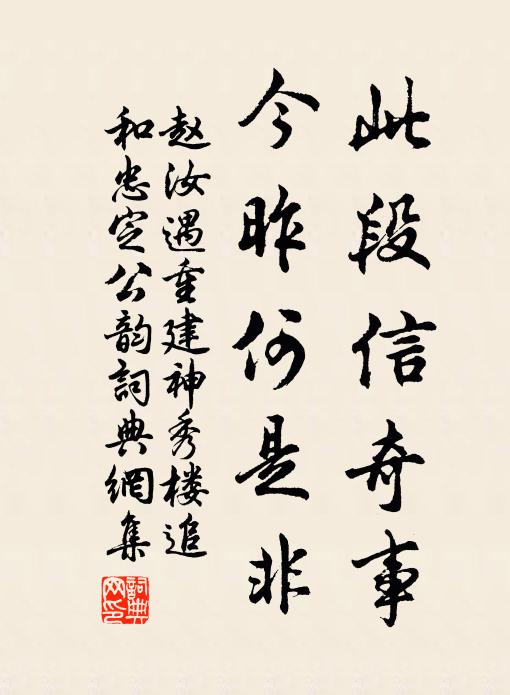 此段信奇事
今昨何是非
赵汝遇重建神秀楼追
和忠定公韵詞典網集
詞典网印